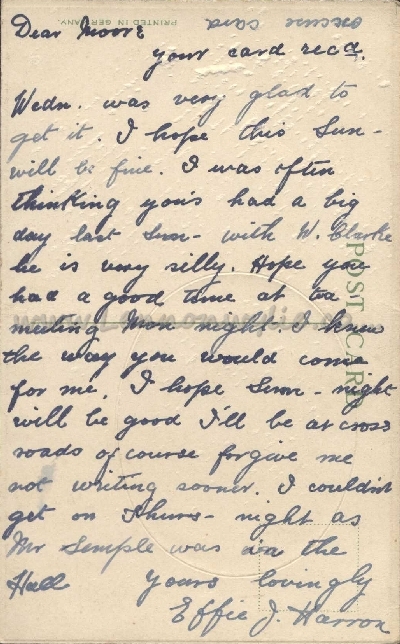 excuse card
PRINTED IN GERMANY.
Dear Moore
your card recd.
Wedn. was very glad to
get it. I hope this Sun-
will be fine. I was often
thinking you's had a big
day last Sun- with W. Clarke
he is very silly. Hope you
had a good time at tea
meeting Mon night. I knew
the way you would come
for me. I hope Sun- night
will be good I'll be at cross
roads of course forgive me
not writing sooner. I couldn't
get on Thurs- night as
Mr Semple was in the
Hall yours lovingly
Effie J. Harron
POST CARD